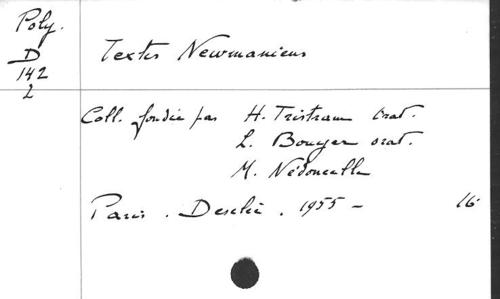 Poly.
D
142
2
Textes Newmaniens
Coll. fondée par H. Tristram Orat.
L. Bouyer orat.
M. Nédoncelle
Paris . Desclée . 1955 - 16°